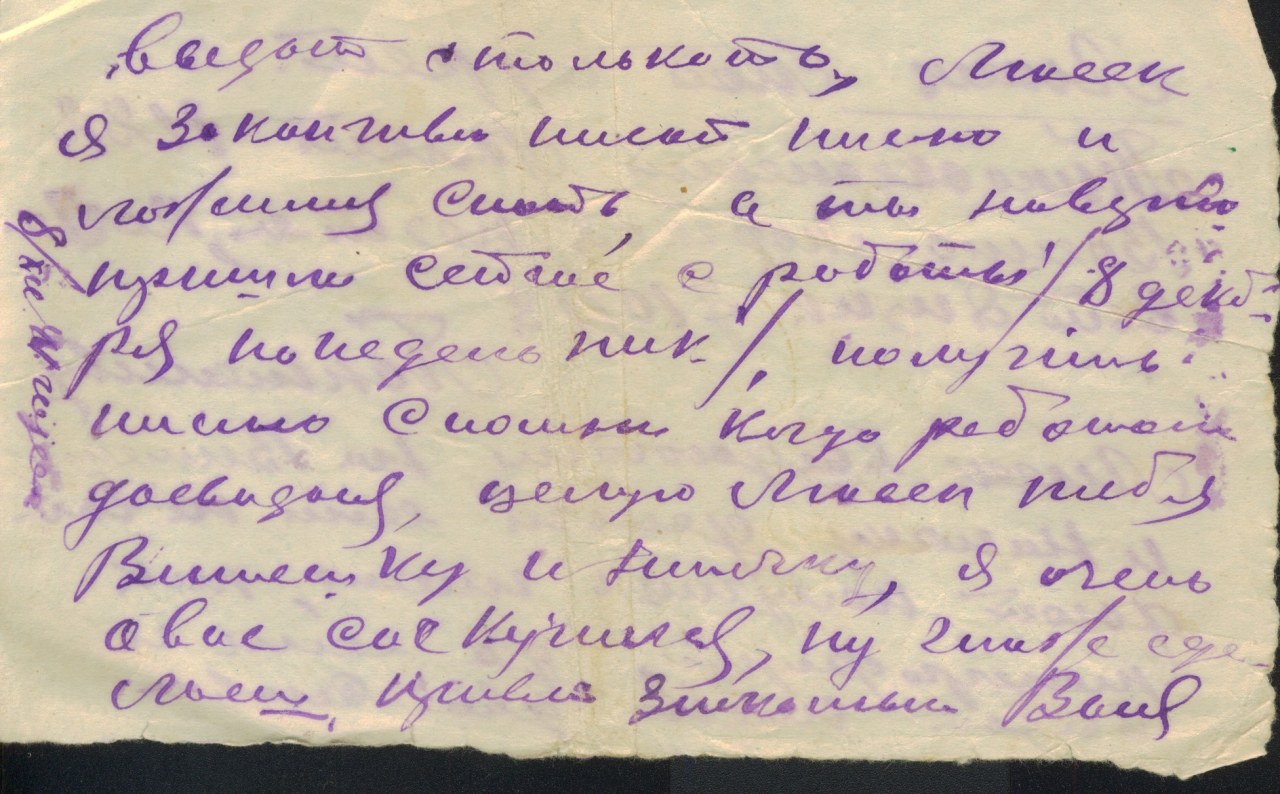 видать столькоть, Люсек
я заканчиваю писат писмо и
ложимся спать, а ты наверно
пришла сейчас с работы /8 декаб-
ря понедельник/, получишь
писмо с почты когда работат
досвиданя, целую Люсек тебя
Витеньку и Ниночку, я очень
о вас соскучился, ну чтоже сде-
лаеш, привет знакомым Ваня
8/XII